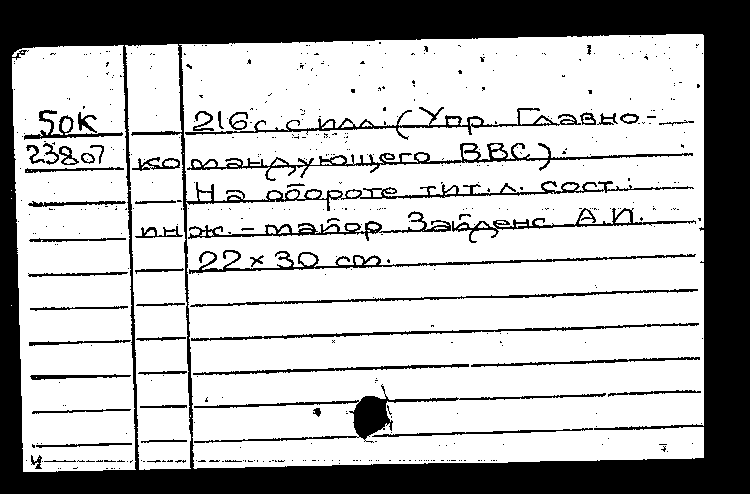 50К 216 с. с илл. (Упр. Главно-
23807 командующего ВВС).
На обороте тит. л. сост.:
инж.-майор Зайденс А.И.
22×30 см.